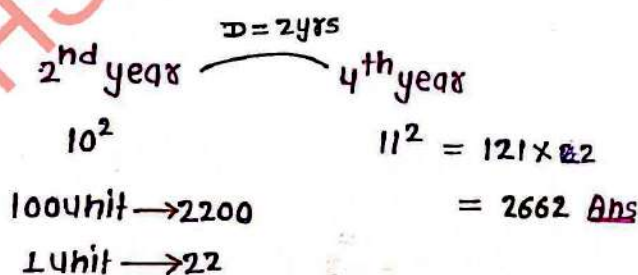 D = 2yrs
2nd year 4th year
10² 11² = 121 × 22
100unit → 2200 = 2662 Ans
1unit → 22